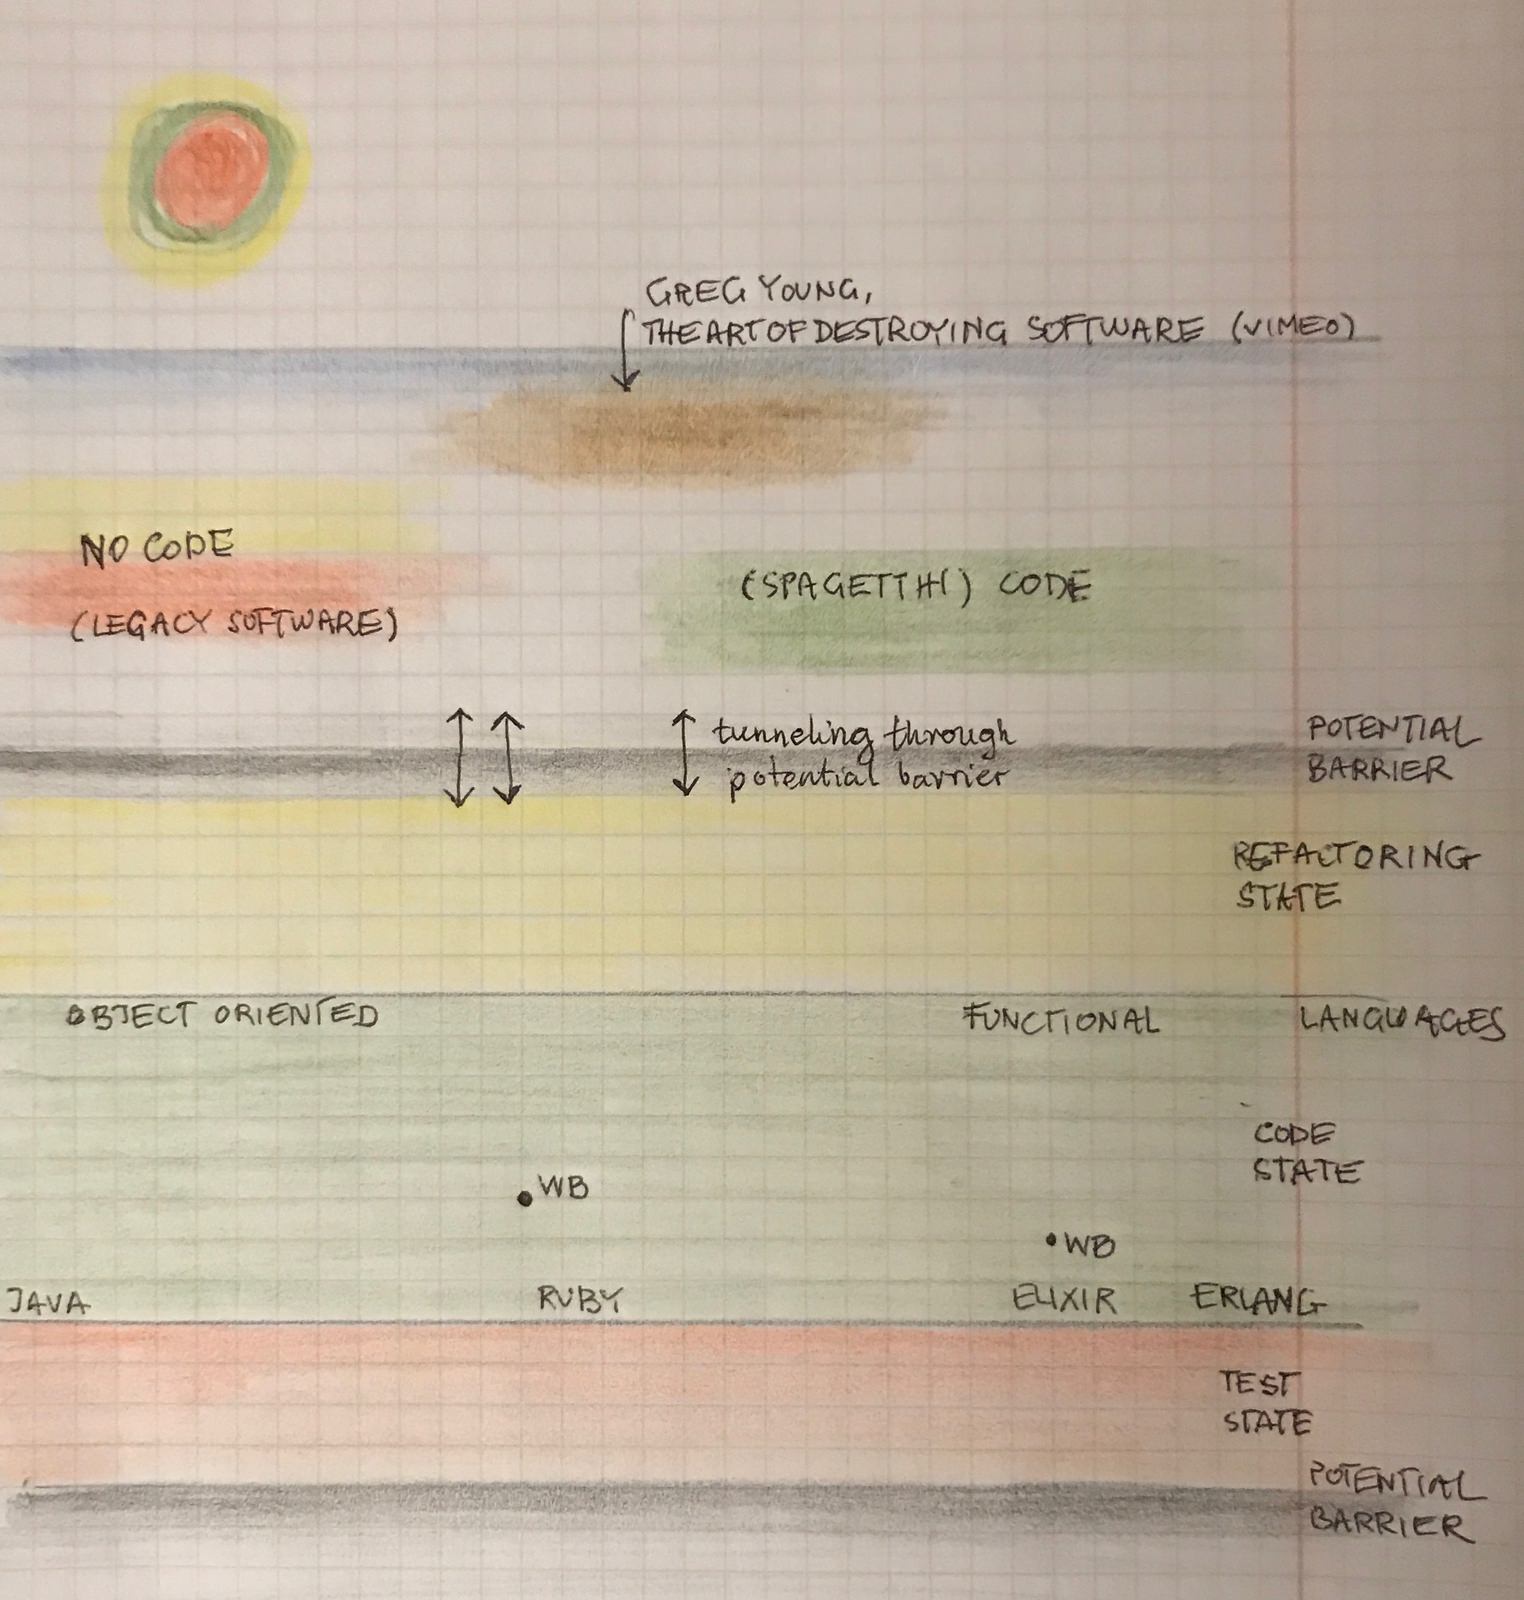 GREG YOUNG,
THE ART OF DESTROYING SOFTWARE (VIMEO)
NO CODE
(LEGACY SOFTWARE)
(SPAGETTHI) CODE
tunneling through
potential barrier
POTENTIAL
BARRIER
REFACTORING
STATE
OBJECT ORIENTED
FUNCTIONAL
LANGUAGES
CODE
STATE
WB
WB
JAVA
RUBY
ELIXIR
ERLANG
TEST
STATE
POTENTIAL
BARRIER